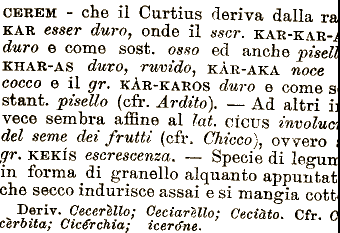 CEREM - che il Curtius deriva dalla ra
KAR esser duro, onde il sscr. KAR-KAR-A
duro e come sost. osso ed anche pisell
KHAR-AS duro, ruvido, KÀR-AKA noce
cocco e il gr. KÀR-KAROS duro e come s
stant. pisello (cfr. Ardito). — Ad altri i
vece sembra affine al lat. CÌCUS involuc
del seme dei frutti (cfr. Chicco), ovvero
gr. KEKÍS escrescenza. — Specie di legum
in forma di granello alquanto appuntat
che secco indurisce assai e si mangia cott
Deriv. Cecerèllo; Ceciarèllo; Ceciàto. Cfr. C
cèrbita; Cicérchia; iceróne.